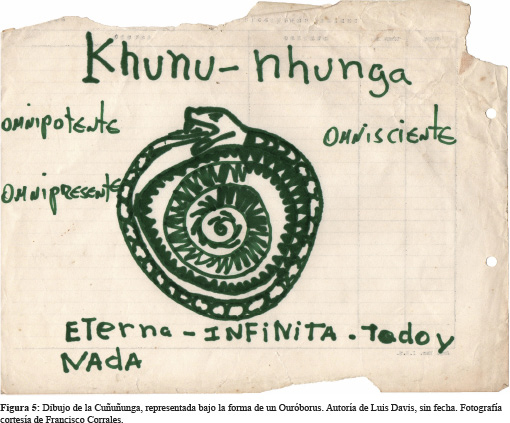 Khunu - nhunga
OMNIPOTENTE
OMNISCIENTE
OMNIPRESENTE
ETerna - INFINITA . Todo y
NADA
Figura 5: Dibujo de la Cuñuñunga, representada bajo la forma de un Ouróborus. Autoría de Luis Davis, sin fecha. Fotografía
cortesía de Francisco Corrales.